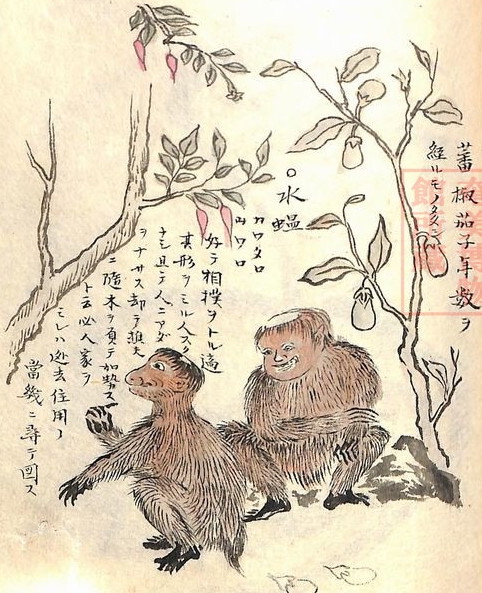 蕃椒茄子年數ヲ
経ルモノ
○水蝹
カワタロ
ワロ
好テ相撲ヲトル適
其形ヲミル人スク
ナシ且テ人ニアダ
ヲナサス却テ
ニ随木ヲ負テ加勢ス
ト云必人家ヲ
ミレハ迯去住用ノ
當幾ニ尋テ図ス